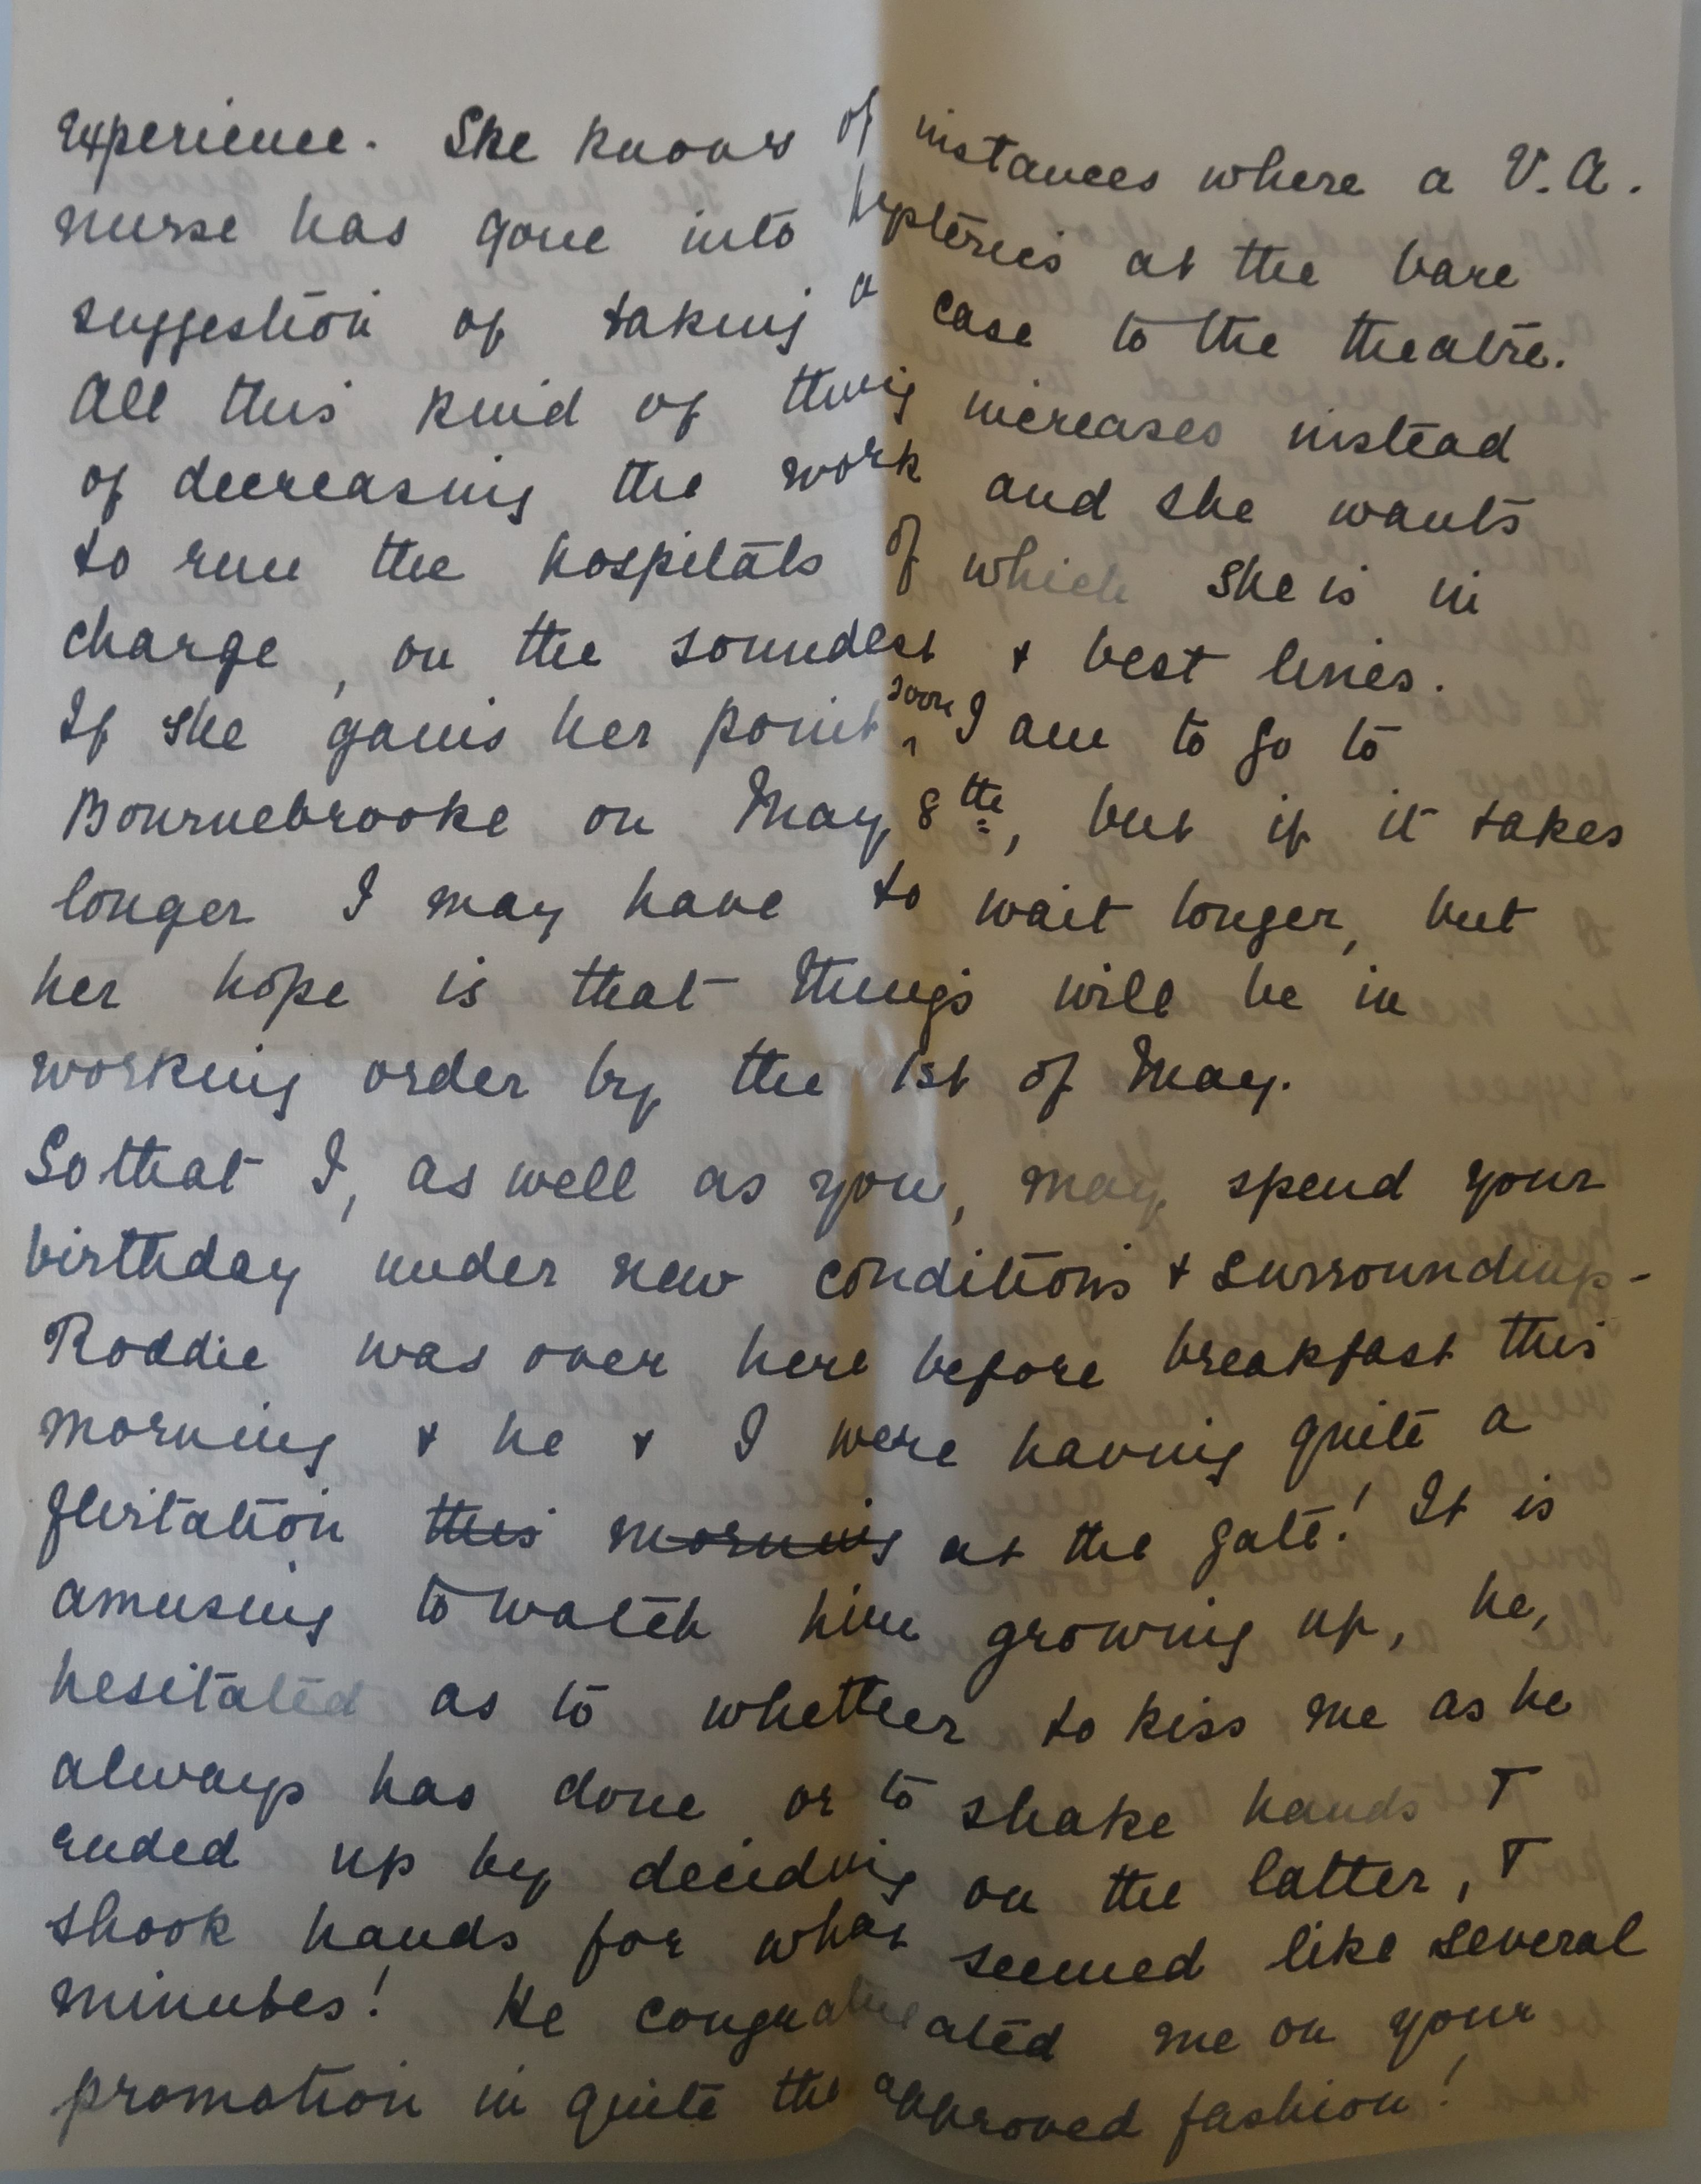 experience. She knows of instances where a V.A.
nurse has gone into hysterics at the bare
suggestion of taking a case to the theatre.
All this kind of thing increases instead
of decreasing the work and she wants
to run the hospitals of which she is in
charge, on the soundest & best lines.
If she gains her point soon I am to go to
Bournebrooke on May 8th, but if it takes
longer I may have to wait longer, but
her hope is that things will be in
working order by the 1st of May.
So that I, as well as you, may spend your
birthday under new conditions & surroundings-
Roddie was over here before breakfast this
morning & he & I were having quite a
flirtation this morning at the gate! It is
amusing to watch him growing up, he,
hesitated as to whether to kiss me as he
always has done or to shake hands &
ended up by deciding on the latter, &
shook hands for what seemed like several
minutes! He congratulated me on your
promotion in quite the approved fashion!